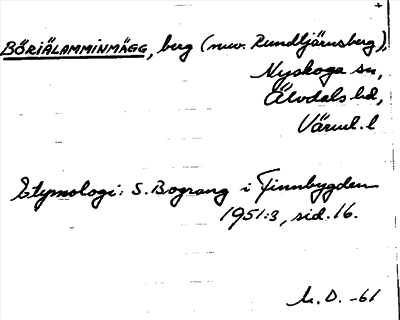 BÖRIÄLAMMINMÄGG, berg (nuv. Rundtjärnsberg),
Nyskoga sn,
Älvdals hd,
Värml. l
Etymologi: S. Bograng i Finnbygden
1951:3, sid. 16.
M. O. -61